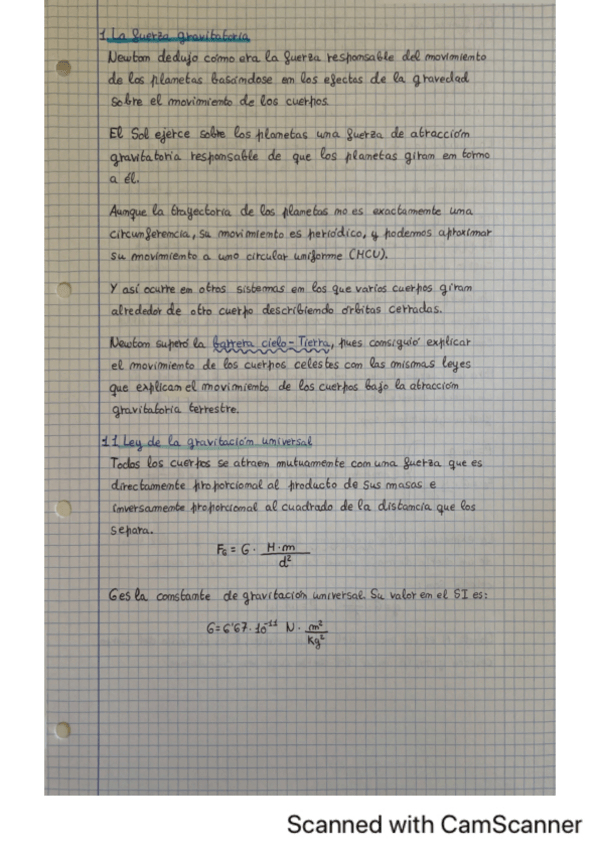 1. La fuerza gravitatoria
Newton dedujo como era la fuerza responsable del movimiento
de los planetas basándose en los efectos de la gravedad
sobre el movimiento de los cuerpos.
El Sol ejerce sobre los planetas una fuerza de atracción
gravitatoria responsable de que los planetas giran en torno
a él.
Aunque la trayectoria de los planetas no es exactamente una
circunferencia, su movimiento es periódico, y podemos aproximar
su movimiento a uno circular uniforme (MCU).
Y así ocurre en otros sistemas en los que varios cuerpos giran
alrededor de otro cuerpo describiendo órbitas cerradas.
Newton superó la barrera cielo-Tierra, pues consiguió explicar
el movimiento de los cuerpos celestes con las mismas leyes
que explican el movimiento de los cuerpos bajo la atracción
gravitatoria terrestre.
1.1 Ley de la gravitación universal
Todos los cuerpos se atraen mutuamente con una fuerza que es
directamente proporcional al producto de sus masas e
inversamente proporcional al cuadrado de la distancia que los
separa.
FG = G · M·m / d²
G es la constante de gravitación universal. Su valor en el SI es:
G = 6'67 · 10⁻¹¹ N · m² / Kg²
Scanned with CamScanner